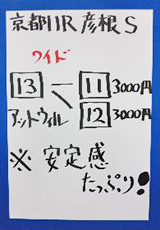 京都11R 彦根S
ワイド
13 11 3000円
アットウィル 12 3000円
※ 安定感
たっぷり!